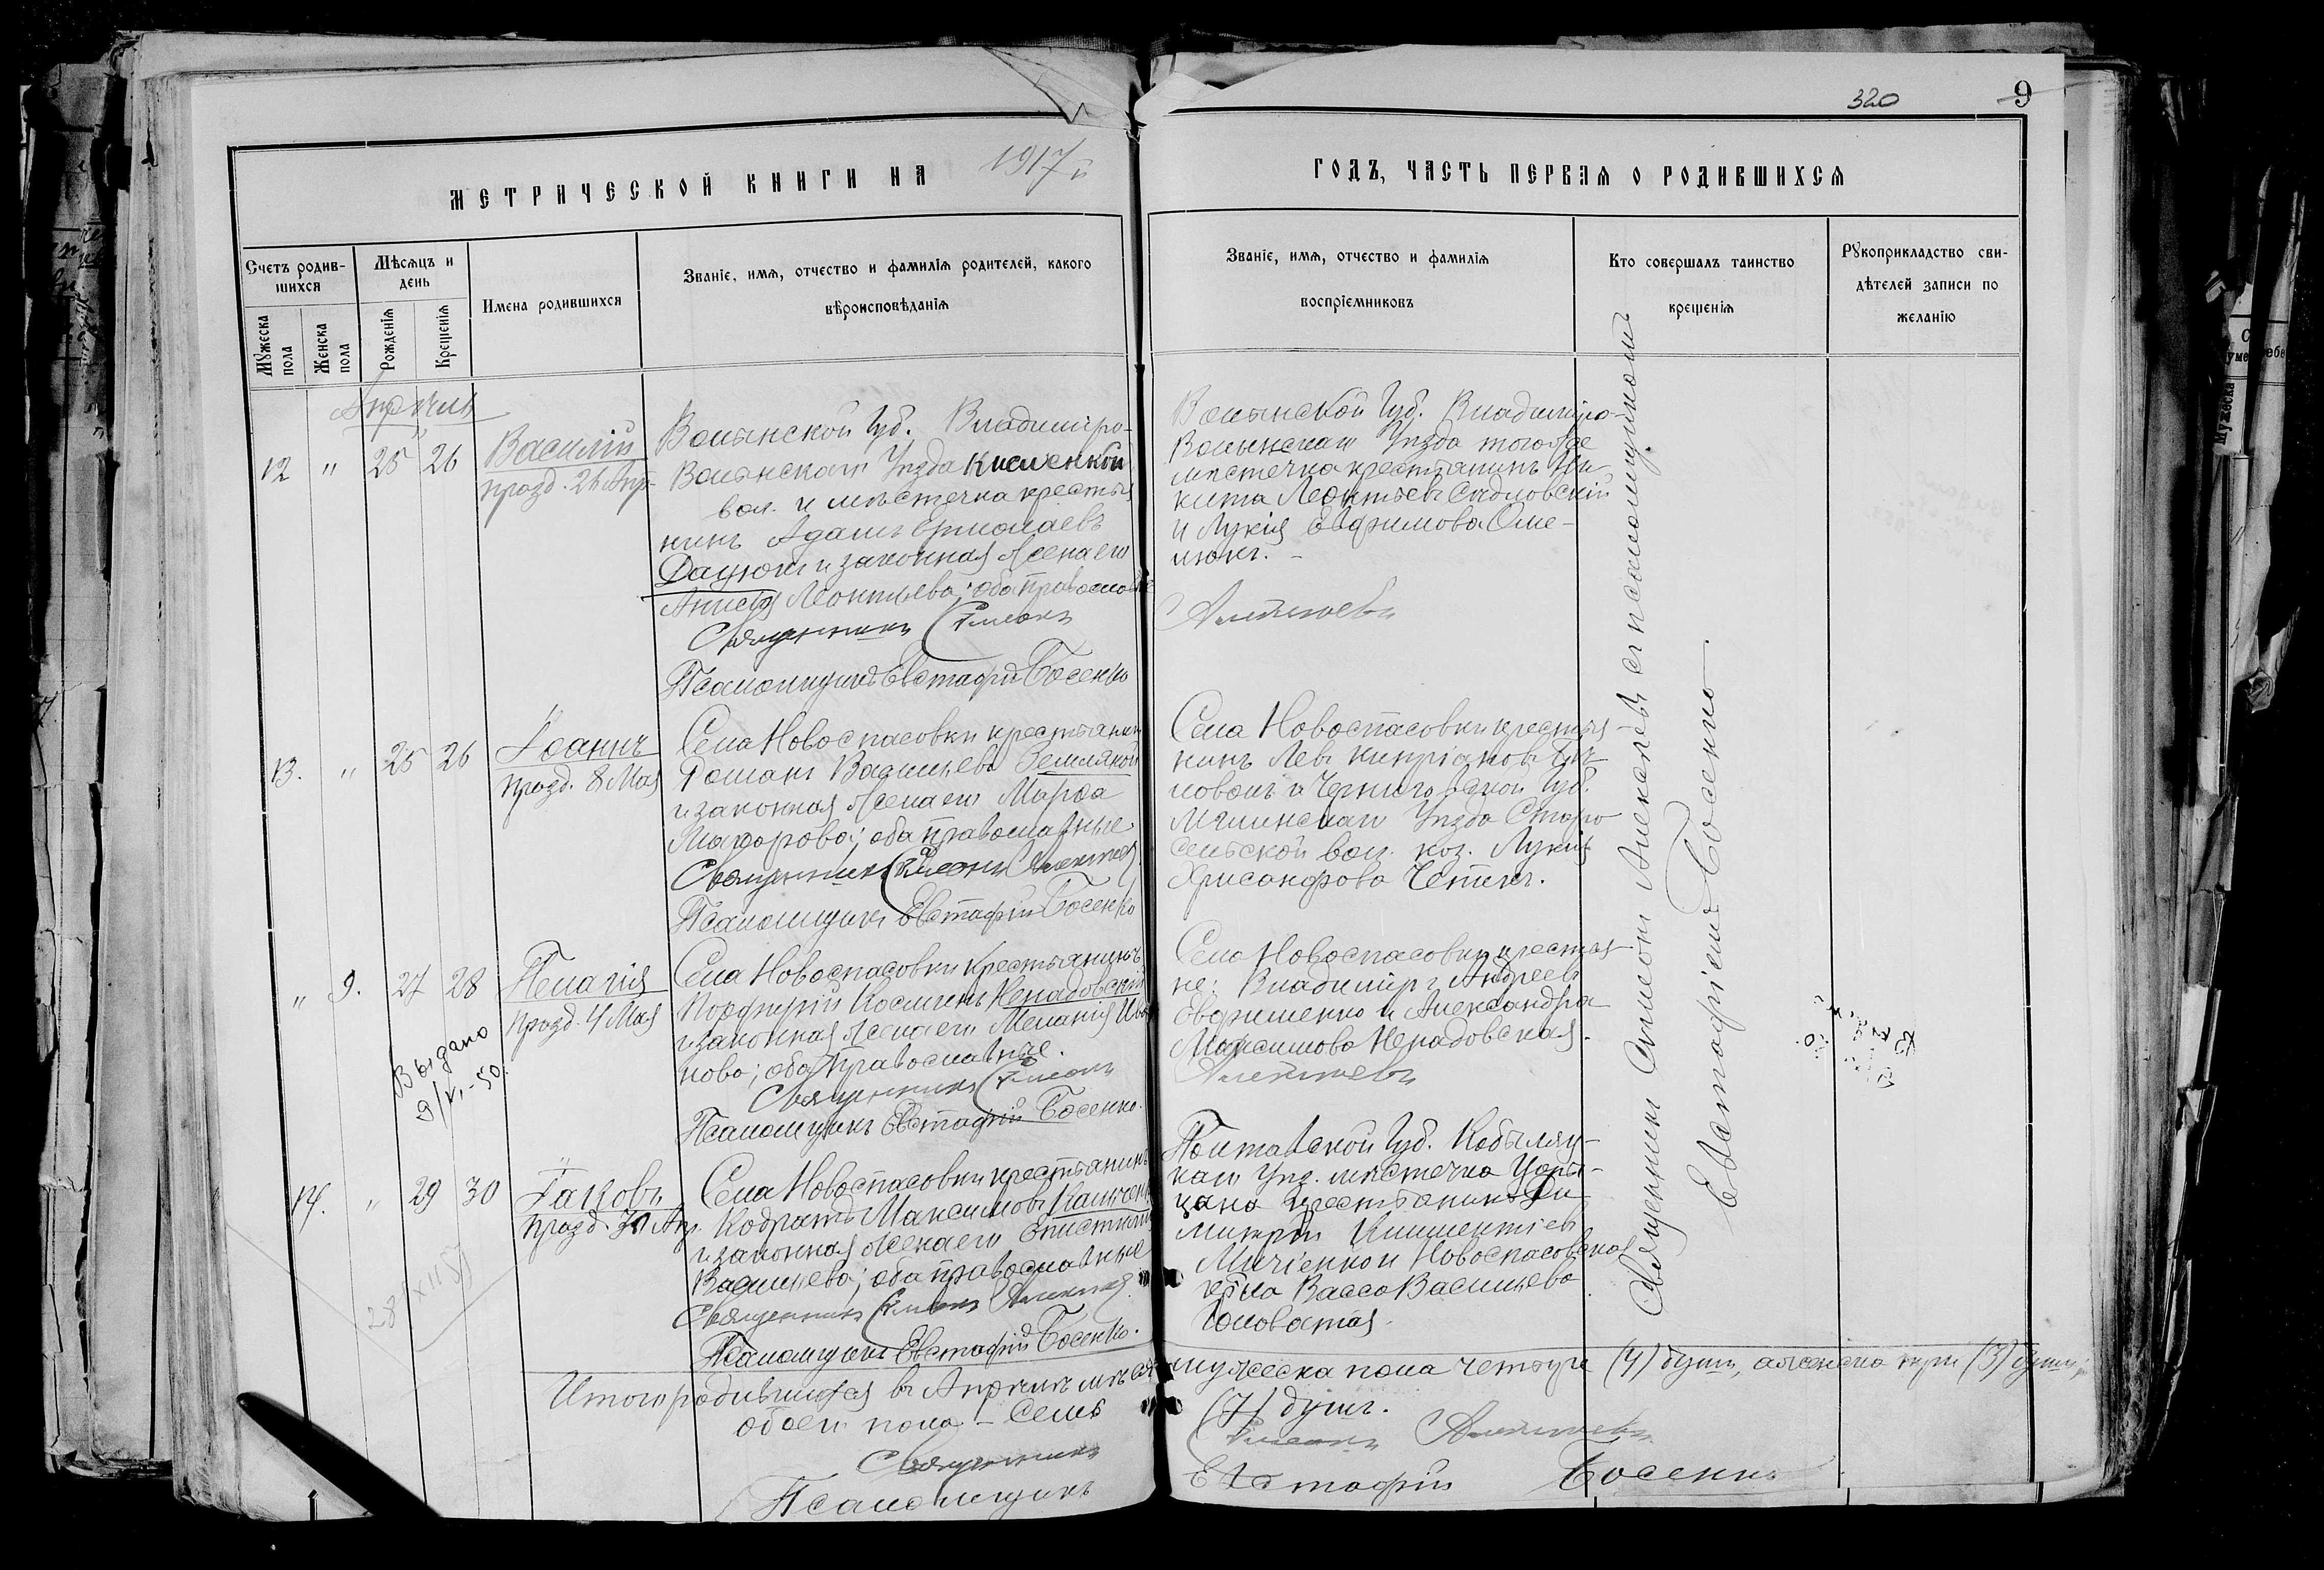 320
9
МЕТРИЧЕСКОЙ КНИГИ НА 1917й
ГОДЪ, ЧАСТЬ ПЕРВАЯ О РОДИВШИХСЯ
Счетъ родив-
шихся
Мужеска пола
Женска пола
Мѣсяцъ и
день
Рожденія
Крещенія
Имена родившихся
Званіе, имя, отчество и фамилія родителей, какого
вѣроисповѣданія
Званіе, имя, отчество и фамилія
воспріемниковъ
Кто совершалъ таинство
крещенія
Рукоприкладство сви-
дѣтелей записи по
желанію
Апрѣль
12 " 25 26
Василій
празд. 26 Апр.
Волынской Губ. Владиміро-
Волынскаго Уѣзда Киселенкой
вол. и мѣстечка крестья
нинъ Адамъ Ермолаевъ
Дацюкъ и законная жена его
Анисія Леонтьева; оба православ
Священникъ Симеонъ
Алексѣевъ
Псаломщикъ Евстафій Босенко
Волынской Губ. Владиміро-
Волынскаго Уѣзда того же
мѣстечка крестьянинъ Ни
кита Леонтьевъ
и Лукія Евфимова Оме-
люкъ.
13. " 25 26
Іоаннъ
празд. 8 Мая
Села Новоспасовки крестьянин
Романъ Васильевъ Землякой
и законная жена его Марфа
оба православные
Священникъ Симеонъ Алексѣев
Псаломщикъ Евстафій Босенко
Села Новоспасовки крестья-
нинъ Левъ Кипріановъ
и Черниговской Губ.
Мглинскаго Уѣзда Старо
сельской вол. коз. Лукія
Четикъ.
" 9. 27 28
Пелагія
празд. 4 Мая
Выдано
9/VI-50.
Села Новоспасовки крестьянинъ
Порфирій Косминъ Ненадовскій
и законная жена его Меланія Ива
нова; оба православные.
Священникъ Симеонъ
Алексѣевъ
Псаломщикъ Евстафій Босенко.
Села Новоспасовки крестья-
не: Владиміръ Андреевъ
Евфименко и Александра
Максимова Ненадовская.
14. " 29 30
Іаковъ
празд. 30 Апр.
Села Новоспасовки крестьянинъ
Кодратъ Максимовъ Каличенк
и законная жена его Епистимія
Васильева; оба православные
Священникъ Симеонъ Алексѣев
Псаломщикъ Евстафій Босенко.
Полтавской Губ. Кобыляц-
каго Уѣз. мѣстечка Цари-
чана крестьянинъ Ди-
митрій Климентіевъ
и Новоспасовская
кр-ка Васса Васильева
Головатая.
Священникъ Симеонъ Алексѣевъ съ псаломщикомъ
Евстафіемъ Босенко
Итого родившихся въ Апрѣлѣ мѣсяцѣ мужеска пола четыре (4) душъ, а женска три (3) души,
обоего пола - семь (7) душъ.
Священникъ Симеонъ Алексѣевъ
Псаломщикъ Евстафій Босенко